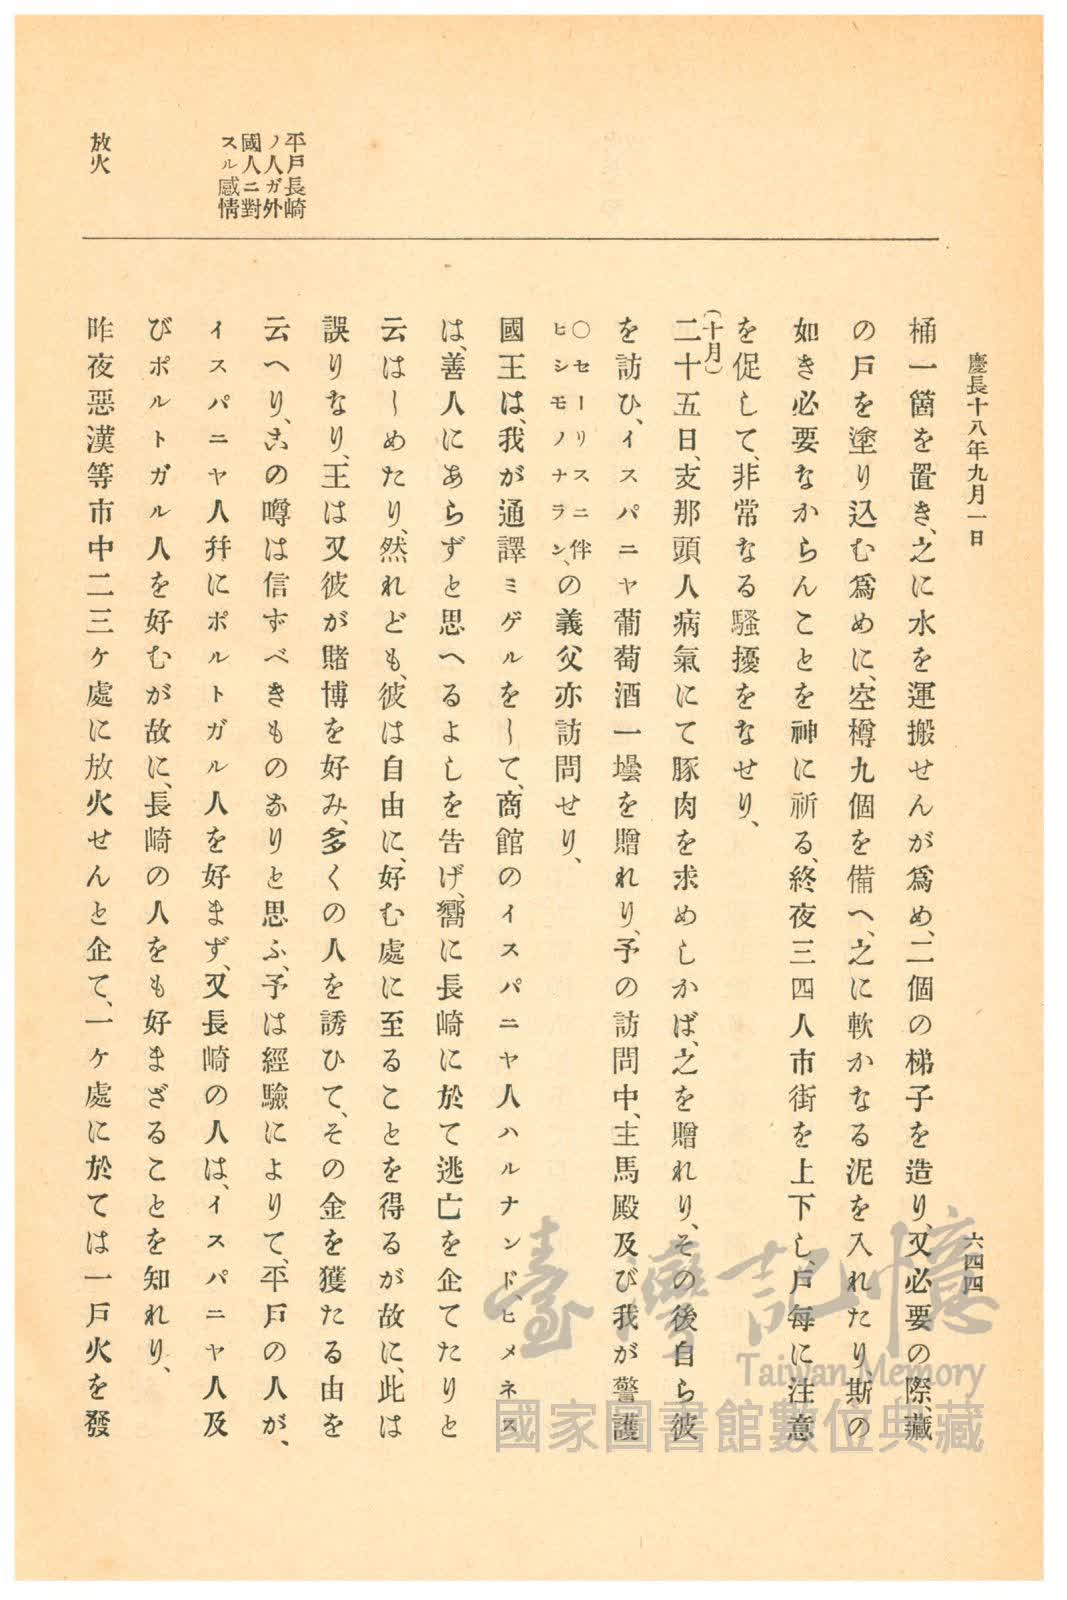 慶長十八年九月一日
六四四
桶一箇を置き、之に水を運搬せんが爲め、二個の梯子を造り、又必要の際、藏
の戸を塗り込む爲めに、空樽九個を備へ、之に軟かなる泥を入れたり斯の
如き必要なからんことを神に祈る、終夜三四人市街を上下し、戸毎に注意
を促して、非常なる騷擾をなせり、
(十月)
二十五日、支那頭人病氣にて豚肉を求めしかば、之を贈れり、その後自ら彼
を訪ひ、イスパニヤ葡萄酒一壜を贈れり、予の訪問中、主馬殿及び我が警護
〇セーリスニ伴
ヒシモノナラン、の義父亦訪問せり、
國王は、我が通譯ミゲルをして、商館のイスパニヤ人ハルナンド、ヒメネス
は、善人にあらずと思へるよしを告げ、嚮に長崎に於て逃亡を企てたりと
云はしめたり、然れども、彼は自由に、好む處に至ることを得るが故に、此は
誤りなり、王は又彼が賭博を好み、多くの人を誘ひて、その金を獲たる由を
云へり、この噂は信ずべきものなりと思ふ、予は經驗によりて、平戸の人が、
イスパニヤ人幷にポルトガル人を好まず、又長崎の人は、イスパニヤ人及
びポルトガル人を好むが故に、長崎の人をも好まざることを知れり、
昨夜惡漢等市中二三ケ處に放火せんと企て、一ケ處に於ては一戸火を發
平戸長崎
ノ人ガ外
國人ニ對
スル感情
放火
臺灣記憶
Taiwan Memory
國家圖書館數位典藏